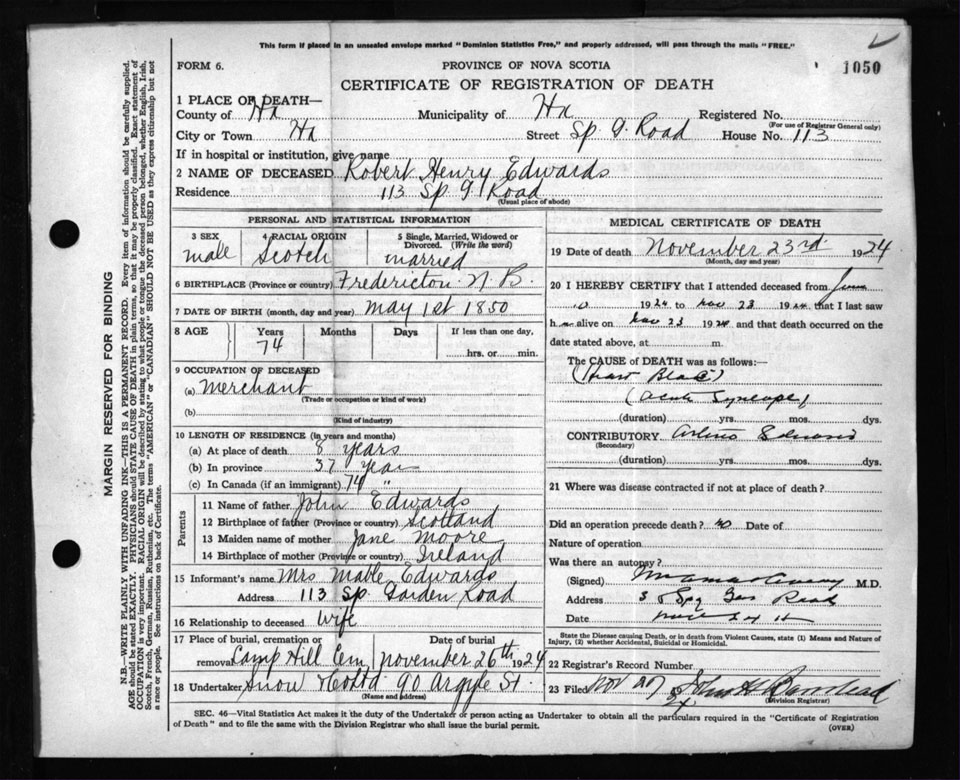 This form if placed in an unsealed envelope marked "Dominion Statistics Free," and properly addressed, will pass through the mails "FREE."
FORM 6.
PROVINCE OF NOVA SCOTIA
1050
CERTIFICATE OF REGISTRATION OF DEATH
MARGIN RESERVED FOR BINDING
N.B.—WRITE PLAINLY WITH UNFADING INK—THIS IS A PERMANENT RECORD. Every item of information should be carefully supplied.
AGE should be stated EXACTLY. PHYSICIANS should STATE CAUSE OF DEATH in plain terms, so that it may be properly classified. Exact statement of
OCCUPATION is very important. RACIAL ORIGIN will be described by stating to what people or tongue the deceased person belonged, whether English, Irish,
Scotch, French, German, Russian, Ruthenian, etc. The terms "AMERICAN" or "CANADIAN" SHOULD NOT BE USED as they express citizenship but not
a race or people. See instructions on back of Certificate.
1 PLACE OF DEATH—
County of Hx Municipality of Hx Registered No.
(For use of Registrar General only)
City or Town Hx Street Sp. G. Road House No. 113
If in hospital or institution, give name
2 NAME OF DECEASED Robert Henry Edwards
Residence 113 Sp. G. Road
(Usual place of abode)
PERSONAL AND STATISTICAL INFORMATION
3 SEX 4 RACIAL ORIGIN 5 Single, Married, Widowed or Divorced. (Write the word)
male Scotch married
6 BIRTHPLACE (Province or country) Fredericton N. B.
7 DATE OF BIRTH (month, day and year) May 1st 1850
8 AGE Years Months Days If less than one day,
74
hrs. or min.
9 OCCUPATION OF DECEASED
(a) Merchant
(Trade or occupation or kind of work)
(b)
(Kind of industry)
10 LENGTH OF RESIDENCE (in years and months)
(a) At place of death 8 years
(b) In province 37 year
(c) In Canada (if an immigrant) 74 "
Parents
11 Name of father John Edwards
12 Birthplace of father (Province or country) Scotland
13 Maiden name of mother Jane Moore
14 Birthplace of mother (Province or country) Ireland
15 Informant's name Mrs Mable Edwards
Address 113 Sp. Garden Road
16 Relationship to deceased Wife
17 Place of burial, cremation or removal Date of burial
Camp Hill Cem, november 26th 1924
18 Undertaker Snow & Co Ltd 90 Argyle St.
(Name and address)
MEDICAL CERTIFICATE OF DEATH
19 Date of death November 23rd 1924
(Month, day and year)
20 I HEREBY CERTIFY that I attended deceased from June
1924 to Nov 23 1924 that I last saw
h m alive on Nov 23 1924 and that death occurred on the
date stated above, at m.
The CAUSE of DEATH was as follows:—
(Heart Block)
(Acute Syncope)
(duration) yrs. mos. dys.
CONTRIBUTORY
(Secondary)
(duration) yrs. mos. dys.
21 Where was disease contracted if not at place of death?
Did an operation precede death? no Date of
Nature of operation
Was there an autopsy?
(Signed) M.D.
Address Road
Date Nov 24
State the Disease causing Death, or in death from Violent Causes, state (1) Means and Nature of
Injury, (2) whether Accidental, Suicidal or Homicidal.
22 Registrar's Record Number
23 Filed Nov 24
(Division Registrar)
SEC. 46—Vital Statistics Act makes it the duty of the Undertaker or person acting as Undertaker to obtain all the particulars required in the "Certificate of Registration
of Death" and to file the same with the Division Registrar who shall issue the burial permit.
(OVER)